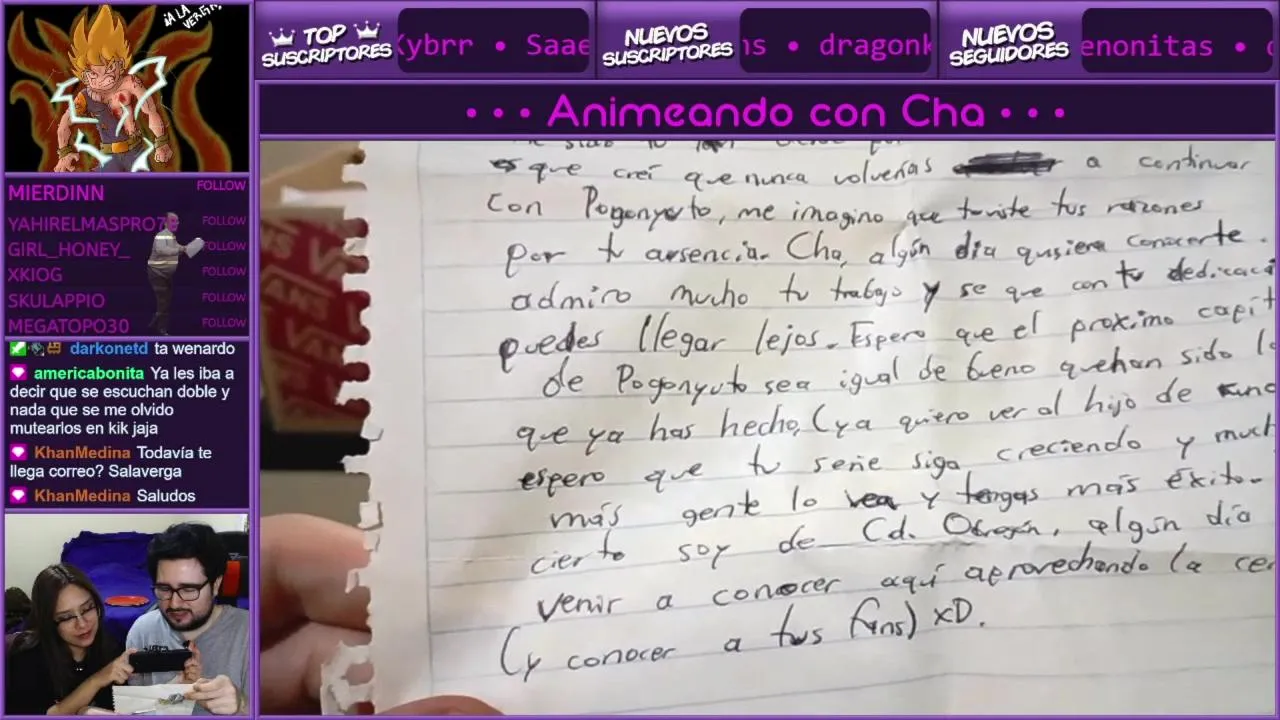 ¡A LA VERGA!
TOP SUSCRIPTORES
Kybrr • Saae
NUEVOS SUSCRIPTORES
ns • dragonk
NUEVOS SEGUIDORES
enonitas •
• • • Animeando con Cha • • •
MIERDINN FOLLOW
YAHIRELMASPRO78 FOLLOW
GIRL_HONEY_ FOLLOW
XKIOG FOLLOW
SKULAPPIO FOLLOW
MEGATOPO30 FOLLOW
darkonetd ta wenardo
americabonita Ya les iba a
decir que se escuchan doble y
nada que se me olvido
mutearlos en kik jaja
KhanMedina Todavía te
llega correo? Salaverga
KhanMedina Saludos
que creí que nunca volverías a continuar
con Pogonyuto, me imagino que tuviste tus razones
por tu ausencia. Cha, algún día qusiera conocerte.
admiro mucho tu trabajo y se que con tu dedicaci
puedes llegar lejos. Espero que el proximo capit
de Pogonyuto sea igual de bueno que han sido lo
que ya has hecho, (ya quiero ver al hijo de
espero que tu serie siga creciendo y much
más gente lo vea y tengas más éxito.
cierto soy de Cd. Obregón, algún día
venir a conocer aquí aprovechando la cer
(y conocer a tus fans) xD.